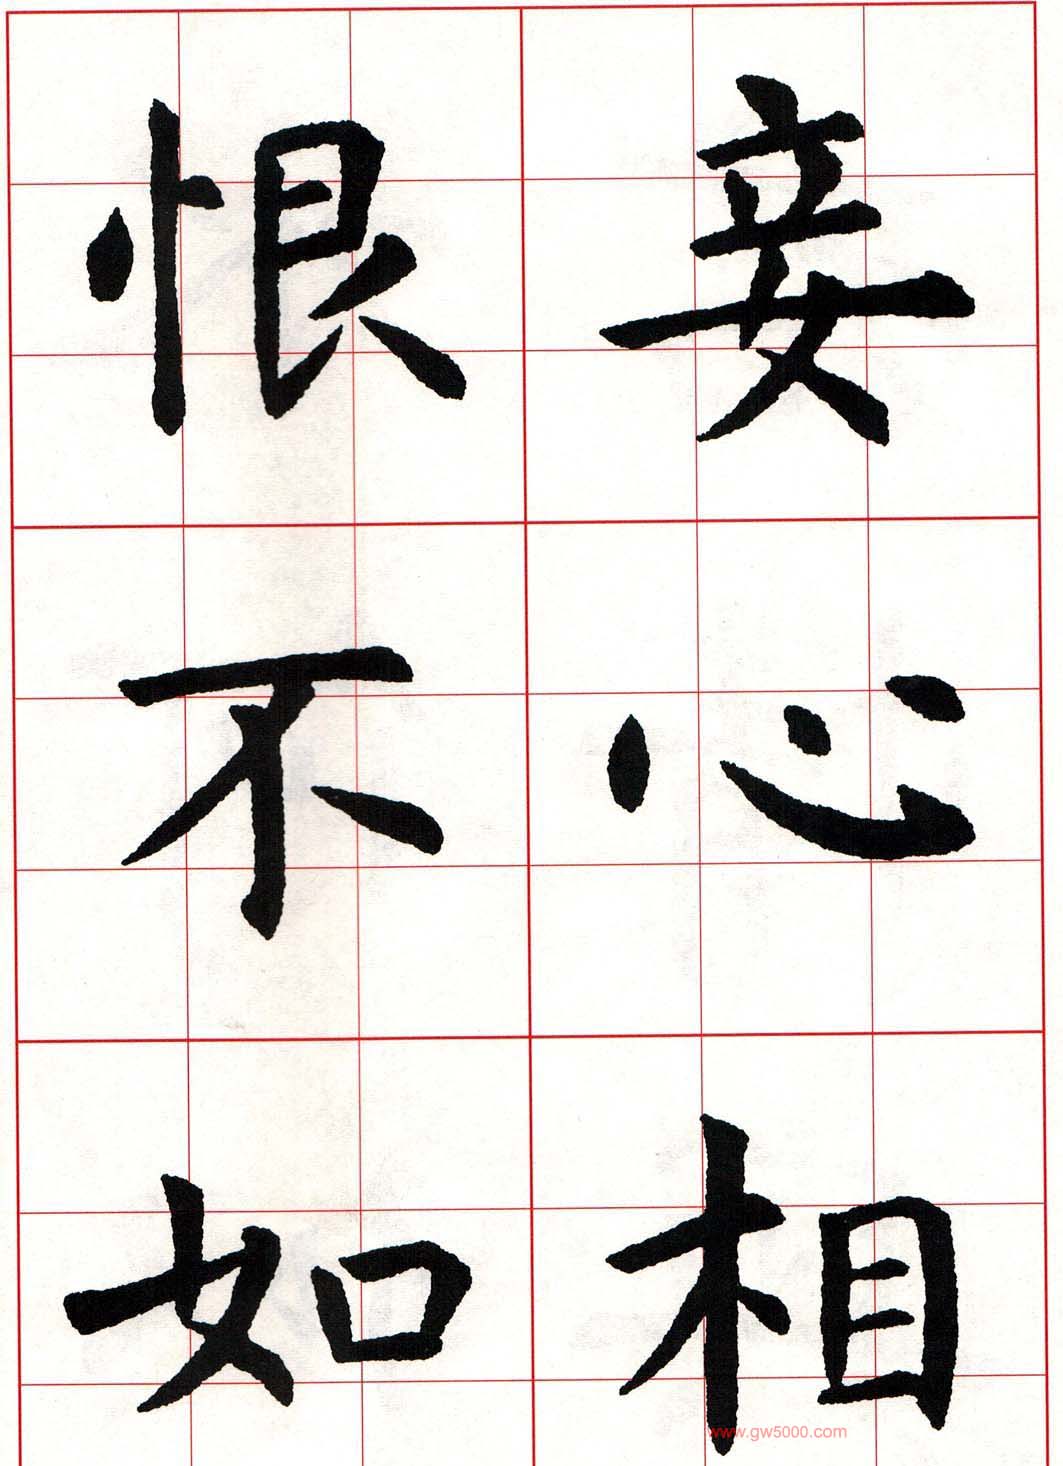 妾心相
恨不如
www.gw5000.com